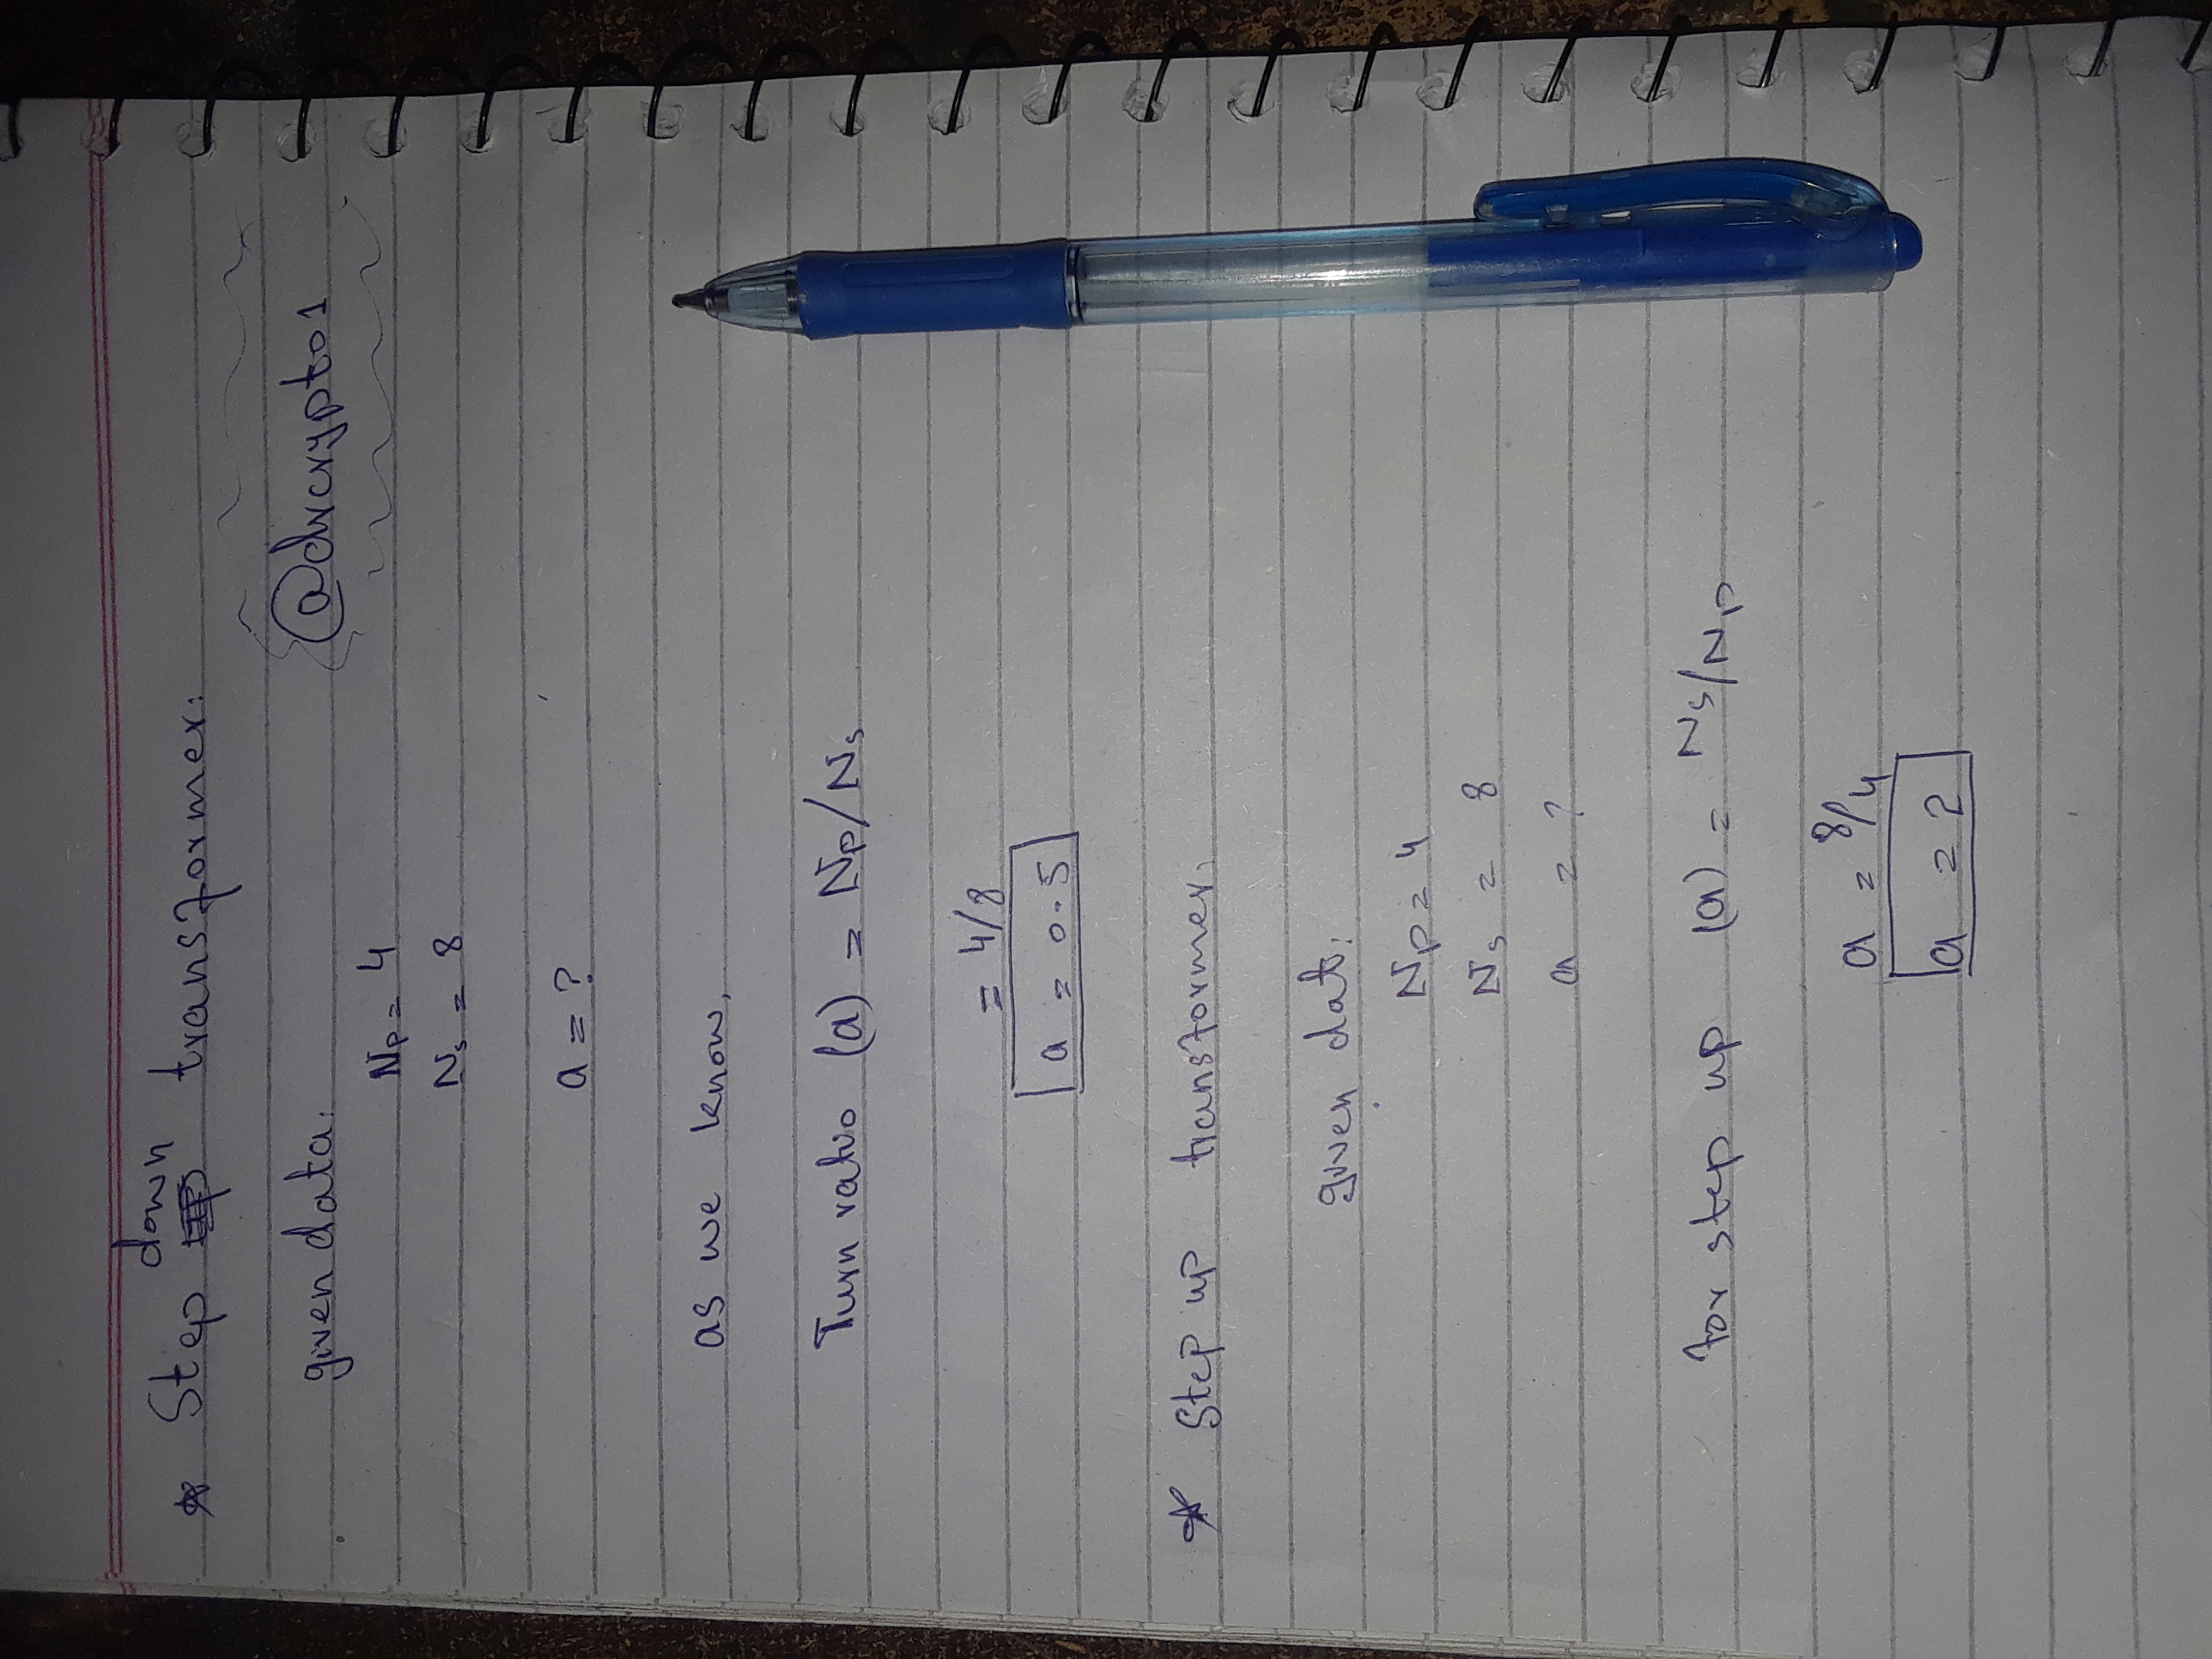 * Step down transformer:
@drcrypto1
given data:
Np = 4
Ns = 8
a = ?
as we know,
Turn ratio (a) = Np/Ns
= 4/8
a = 0.5
* Step up transformer:
given data:
Np = 4
Ns = 8
a = ?
for step up (a) = Ns/Np
a = 8/4
a = 2